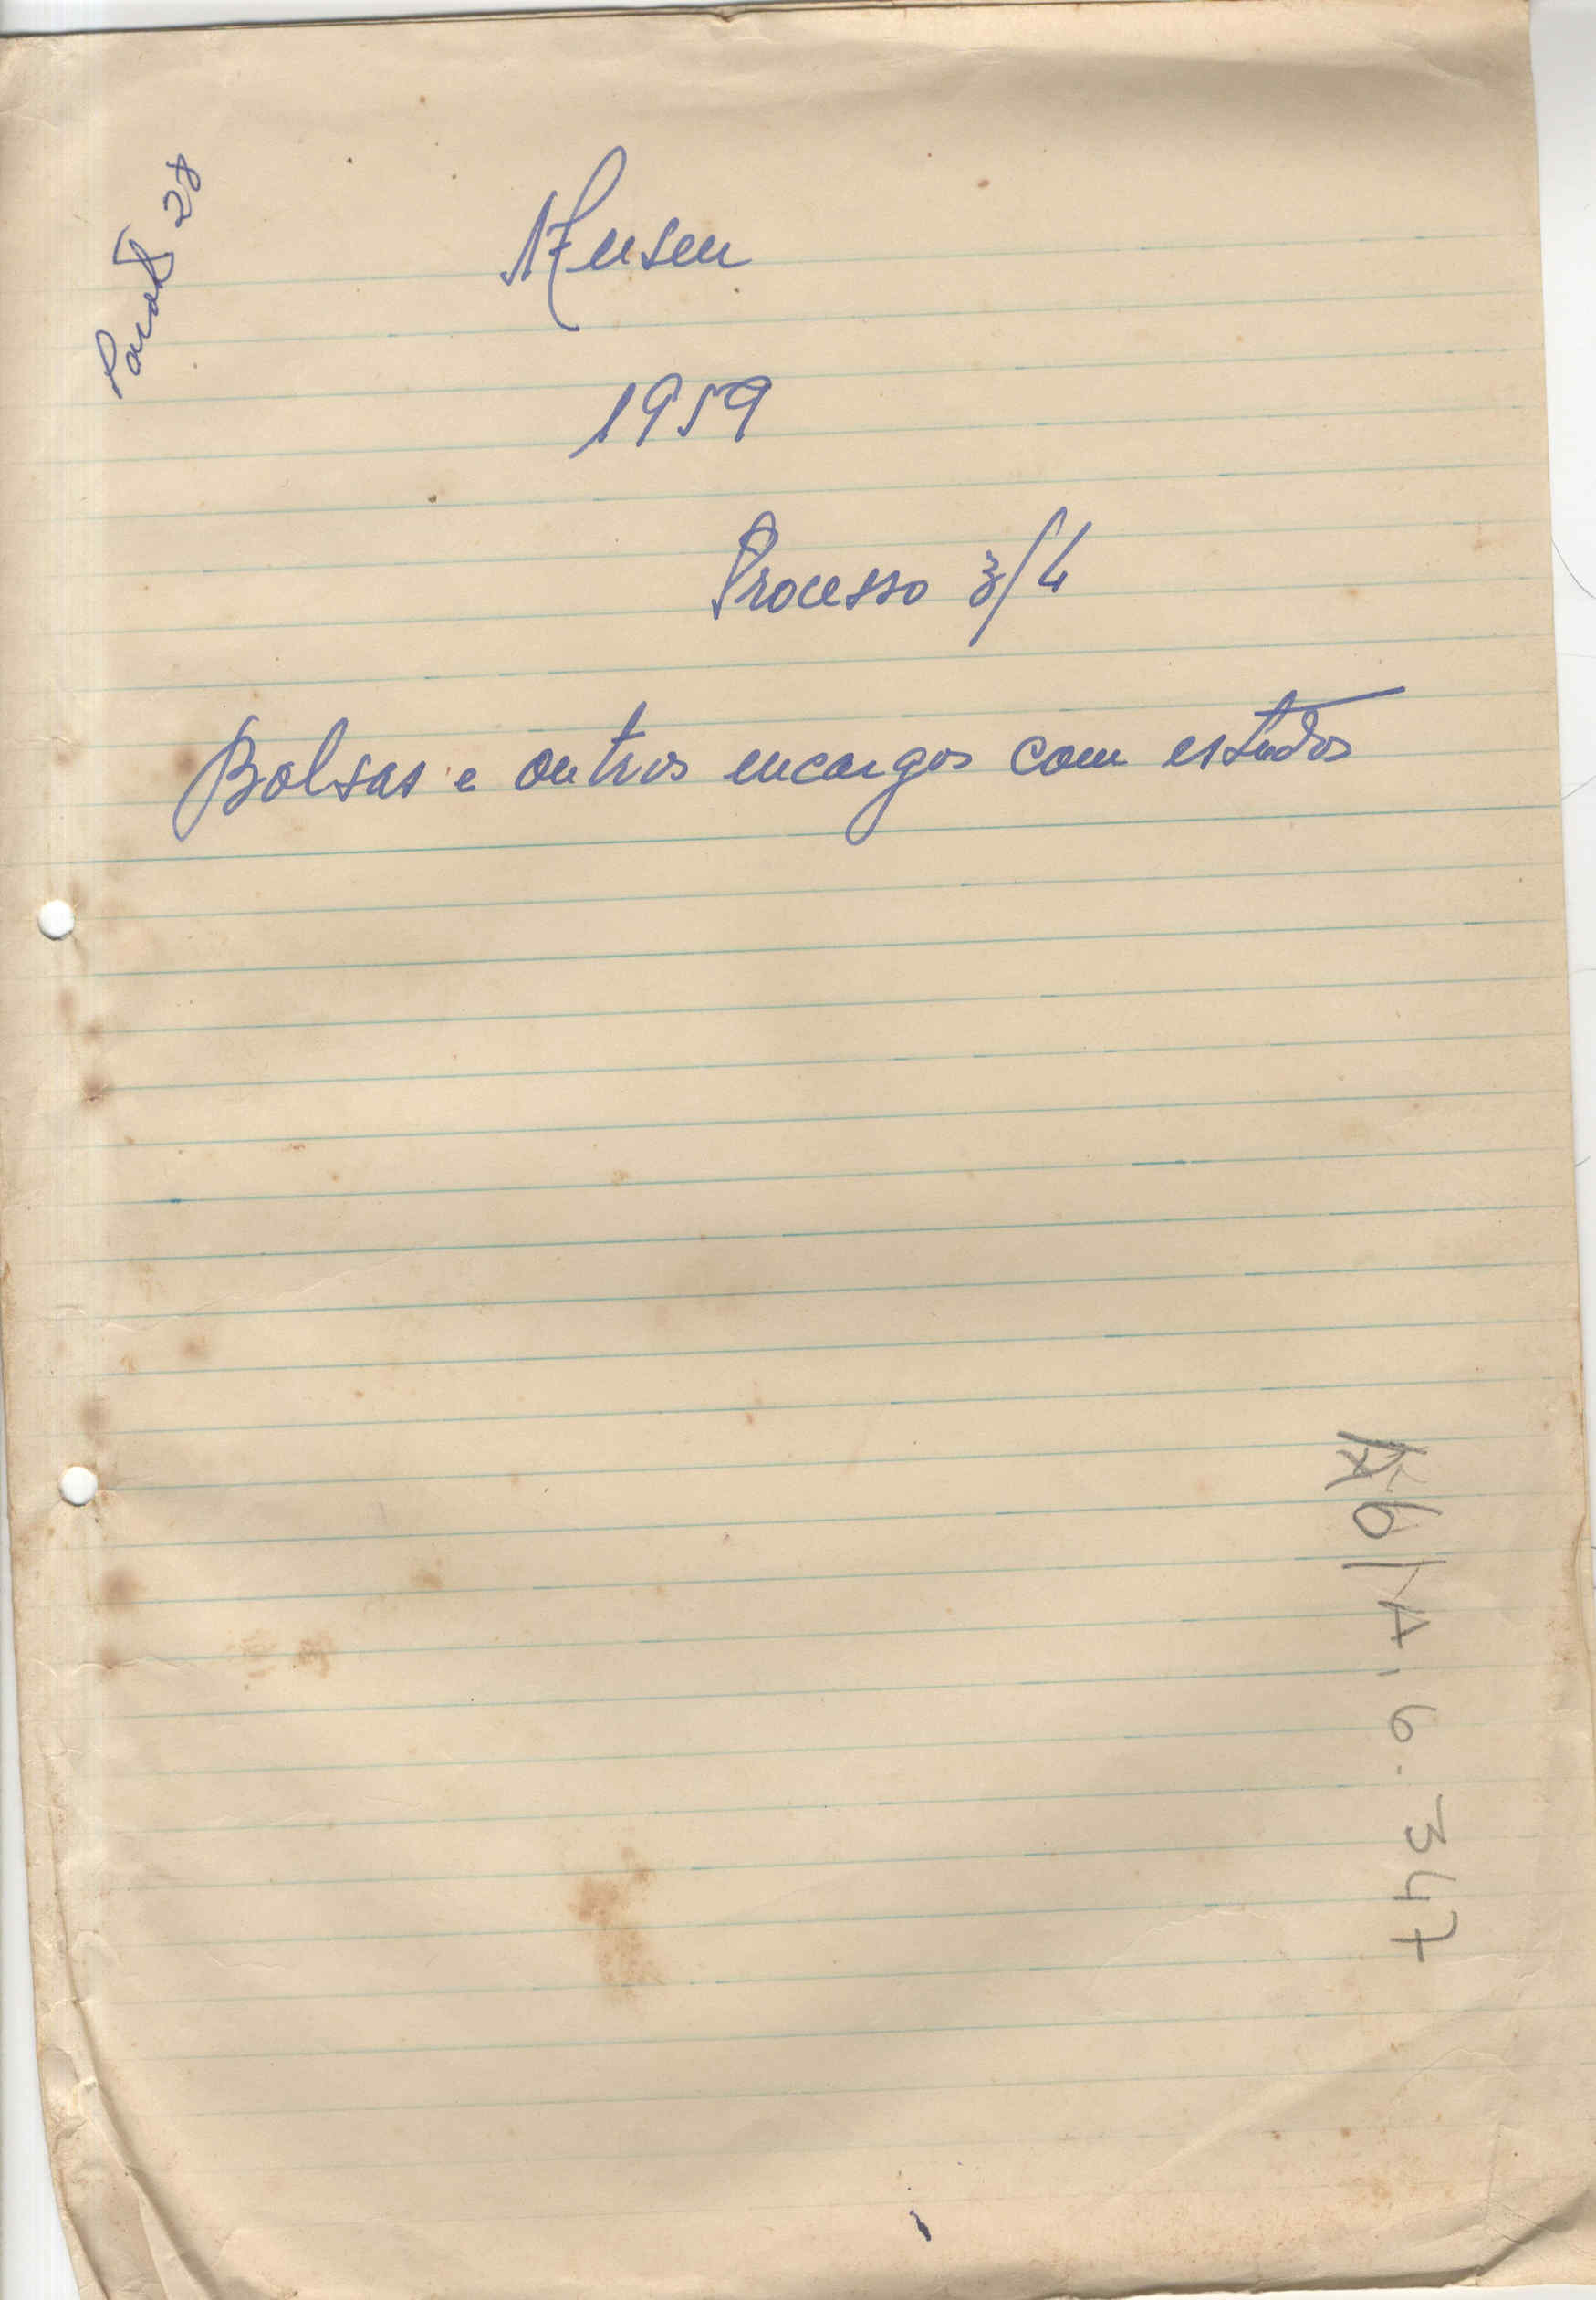 28
Museu
1959
Processo 3/4
Bolsas e outros encargos com estudos
Ab/A.6.347